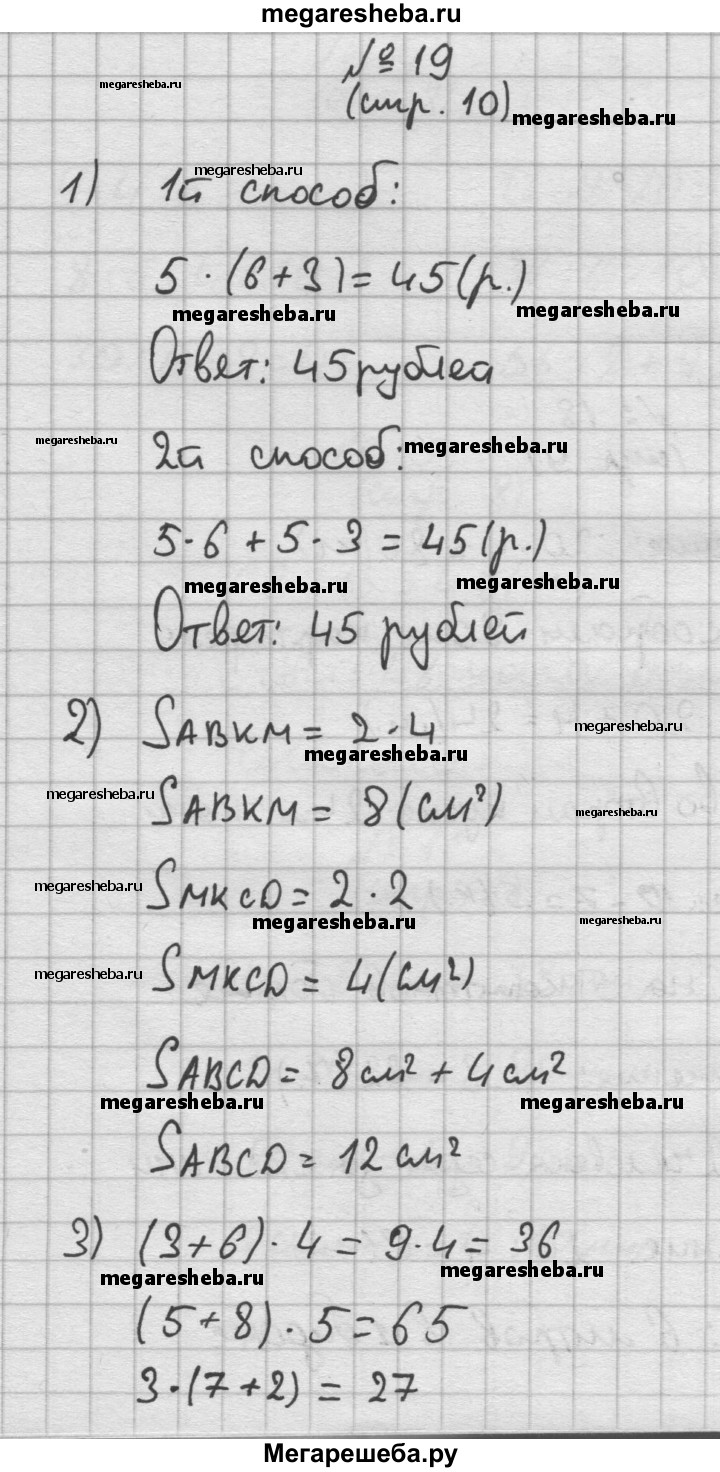 megaresheba.ru
№ 19
megaresheba.ru
(стр. 10)
megaresheba.ru
megaresheba.ru
1) 1й способ:
5 · (6+3) = 45(р.)
megaresheba.ru
megaresheba.ru
Ответ: 45 рублей
megaresheba.ru
2й способ:
megaresheba.ru
5·6 + 5·3 = 45(р.)
megaresheba.ru
megaresheba.ru
Ответ: 45 рублей
2) SABKM = 2·4
megaresheba.ru
megaresheba.ru
megaresheba.ru
SABKM = 8(см²)
megaresheba.ru
megaresheba.ru
SMKCD = 2·2
megaresheba.ru
megaresheba.ru
megaresheba.ru
SMKCD = 4(см²)
SABCD = 8см² + 4см²
megaresheba.ru
megaresheba.ru
SABCD = 12см²
3) (3+6)·4 = 9·4 = 36
megaresheba.ru
megaresheba.ru
(5+8)·5 = 65
3·(7+2) = 27
Мегарешеба.ру